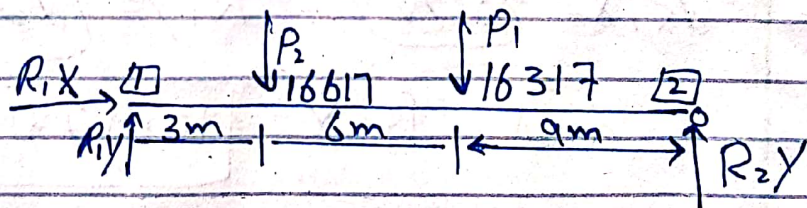 P₂ P₁
R₁X 1 16617 16317 2
R₁Y 3m 6m 9m R₂Y